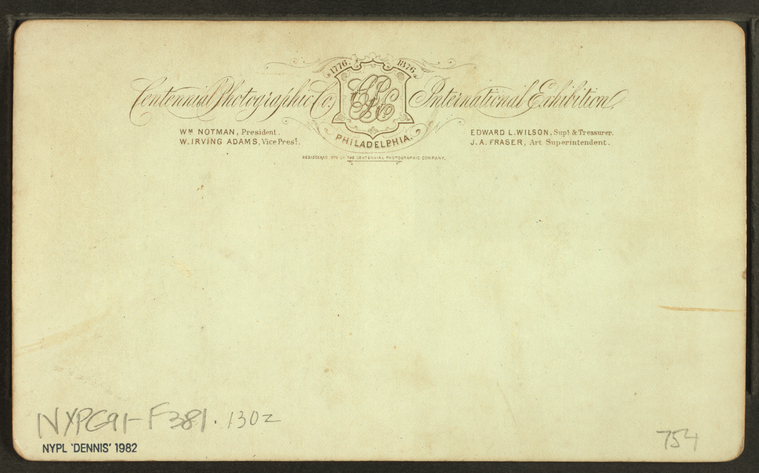 1776. 1876.
Centennial Photographic Co. CPC International Exhibition
PHILADELPHIA.
Wᴹ NOTMAN, President. EDWARD L. WILSON, Supt. & Treasurer.
W. IRVING ADAMS, Vice Prest. J. A. FRASER, Art Superintendent.
REGISTERED 1876 BY THE CENTENNIAL PHOTOGRAPHIC COMPANY.
NYPG91-F381.130z
754
NYPL 'DENNIS' 1982